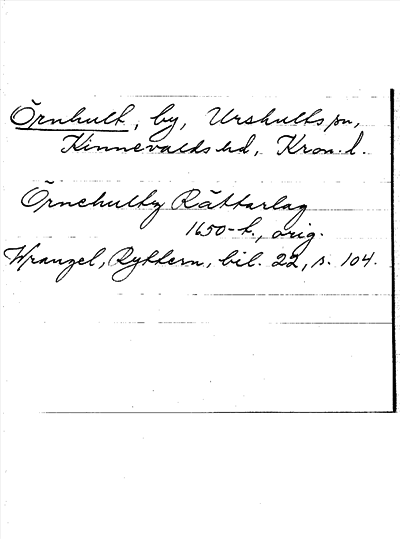 Örnhult, by, Urshults sn,
Kinnevalds hd, Kron. l.
Örnehulty Rättarlag
1650-t., orig.
Wranzel, Ryttern, bil. 22, s. 104.